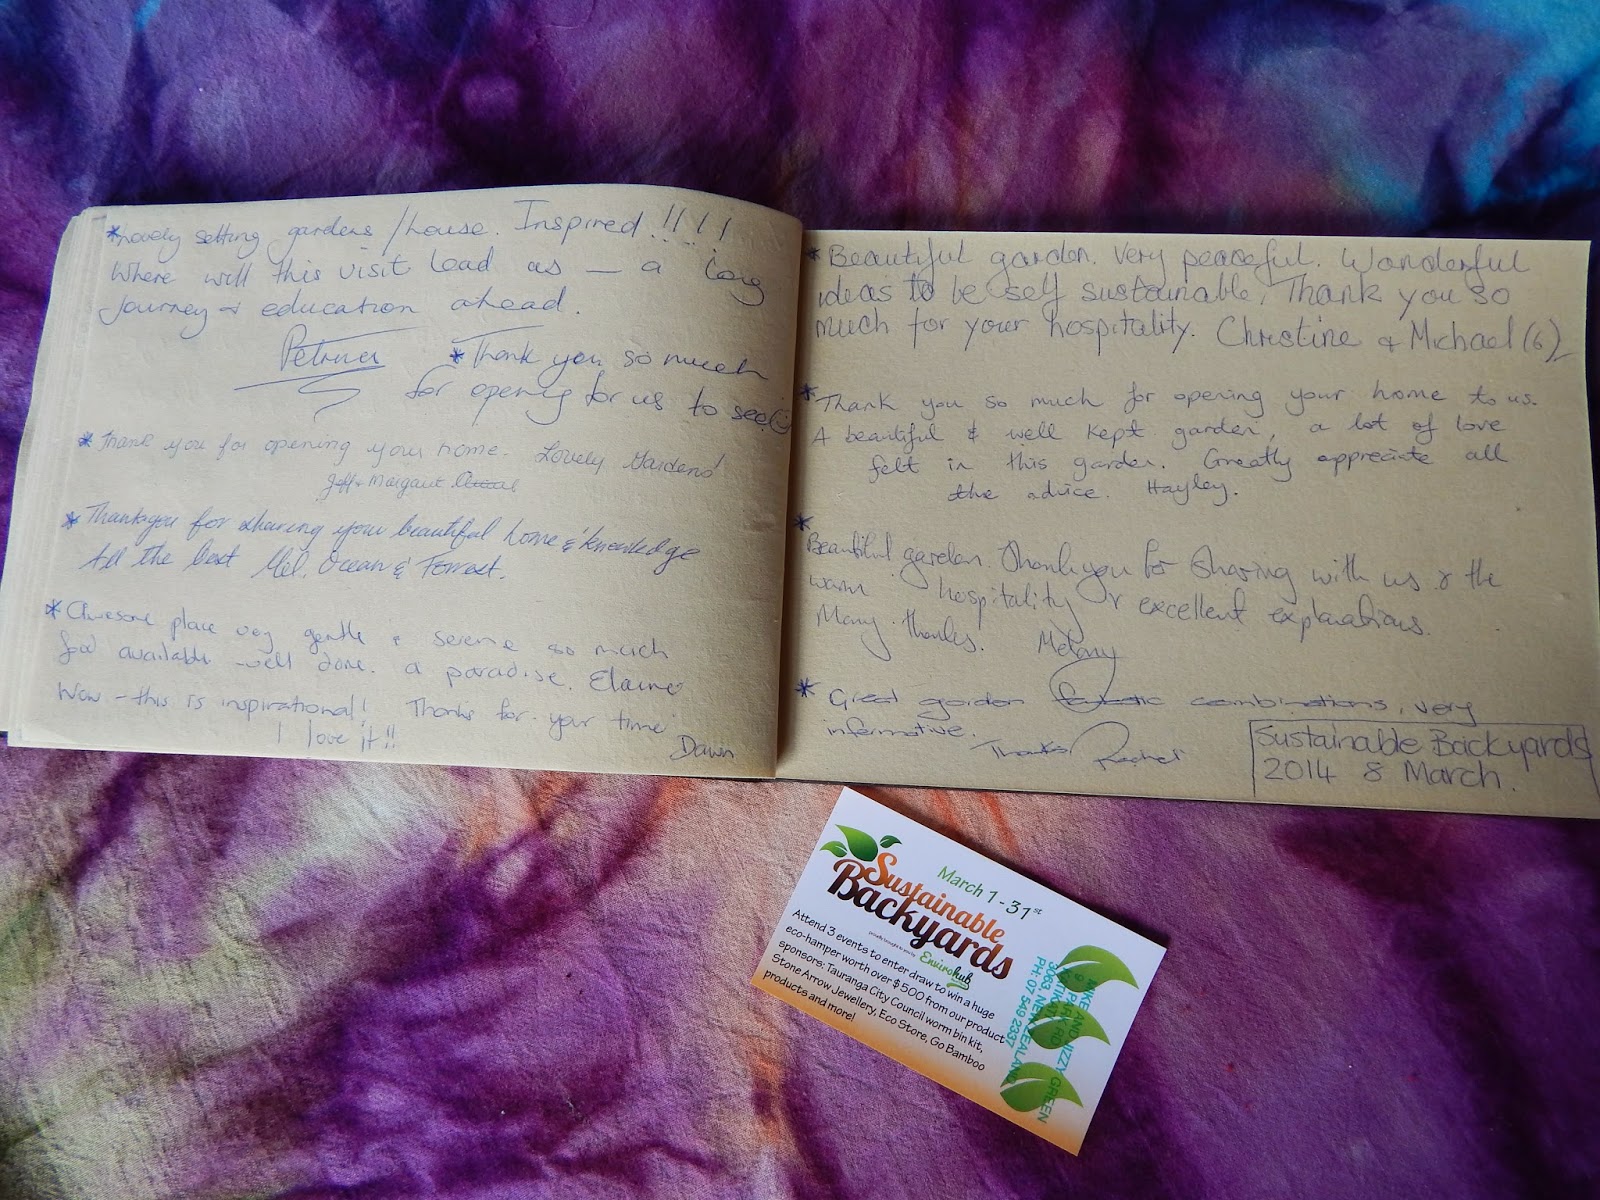 *Lovely setting gardens/house. Inspired!!!!
Where will this visit lead as — a long
journey & education ahead.
*Thank you so much
for opening for us to see
* Thank you for opening your home. Lovely Gardens!
Jeff & Margaret
* Thankyou for sharing your beautiful home & knowledge
All the best Mel, Ocean & Forrest.
* Awesome place very gentle & serene so much
food available - well done. a paradise. Elaine
Wow - this is inspirational! Thanks for your time
I love it!!
Dawn
* Beautiful garden. Very peaceful. Wonderful
ideas to be self sustainable, Thank you so
much for your hospitality. Christine & Michael (6)
* Thank you so much for opening your home to us.
A beautiful & well kept garden, a lot of love
felt in this garden. Greatly appreciate all
the advice. Hayley.
*
Beautiful garden. Thank you for sharing with us & the
warm hospitality & excellent explanations.
Many thanks. Melany
* Great garden combinations, very
informative.
Thanks Rachel
Sustainable Backyards
2014 8 March.
March 1-31st
Sustainable
Backyards
proudly brought to you by Envirohub
Attend 3 events to enter draw to win a huge
eco-hamper worth over $500 from our product
sponsors: Tauranga City Council worm bin kit,
Stone Arrow Jewellery, Eco Store, Go Bamboo
products and more!
MIKE AND LIZZY GREEN
KATIKATI
NEW ZEALAND
PH: 07 549 2337